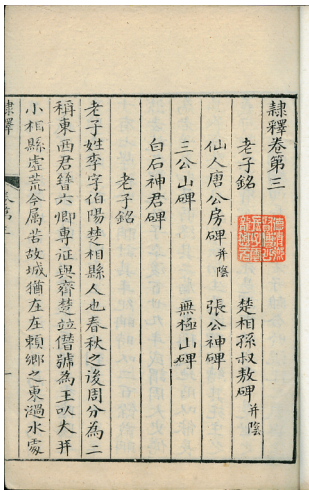 隸釋卷第三
老子銘　楚相孫叔敖碑并陰
仙人唐公房碑并陰　張公神碑
三公山碑　無極山碑
白石神君碑
老子銘
老子姓李字伯陽楚相縣人也春秋之後周分為二
稱東西君晉六卿專征與齊楚竝僭號為王以大并
小相縣虛荒今属苦故城猶在在賴鄉之東濄水處
隸釋